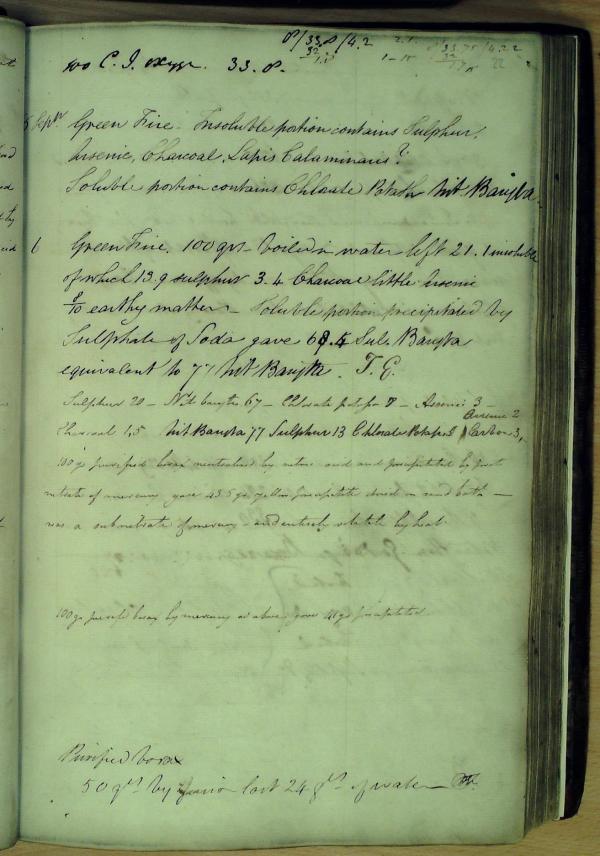 8/33.8/4.2
32
1.8
8/33.75/4.22
32
1 - 15
100 C. I. oxygn. 33. 8.
5 Septr. Green Fire. Insoluble portion contains Sulphur,
Arsenic, Charcoal, Lapis Calaminaris?
Soluble portion contains Chlorate Potash Nit Baryta.
6 Green Fire. 100 grs - boiled in water left 21.1 insoluble
of which 13.9 sulphur 3.4 Charcoal little Arsenic
8/10 earthy matter - Soluble portion precipitated by
Sulphate of Soda gave 68.4 Sul. Baryta
equivalent to 77 Nit Baryta. T. G.
Sulphur 20 - Nit barytes 67 - Chlorate potass 8 - Arsenic 3 -
Arsenic 2
Charcoal 1,5 Nit Baryta 77 Sulphur 13 Chlorate Potash Carbon 3,
100 grs purified borax neutralised by nitric acid and precipitated by
nitrate of mercury gave 43.5 grs yellow precipitate dried on sand bath -
was a subnitrate of mercury - and entirely volatile by heat.
100 grs purified borax by mercury as above gave 41 grs precipitate
Purified borax
50 grs by fusion lost 24 grs of water